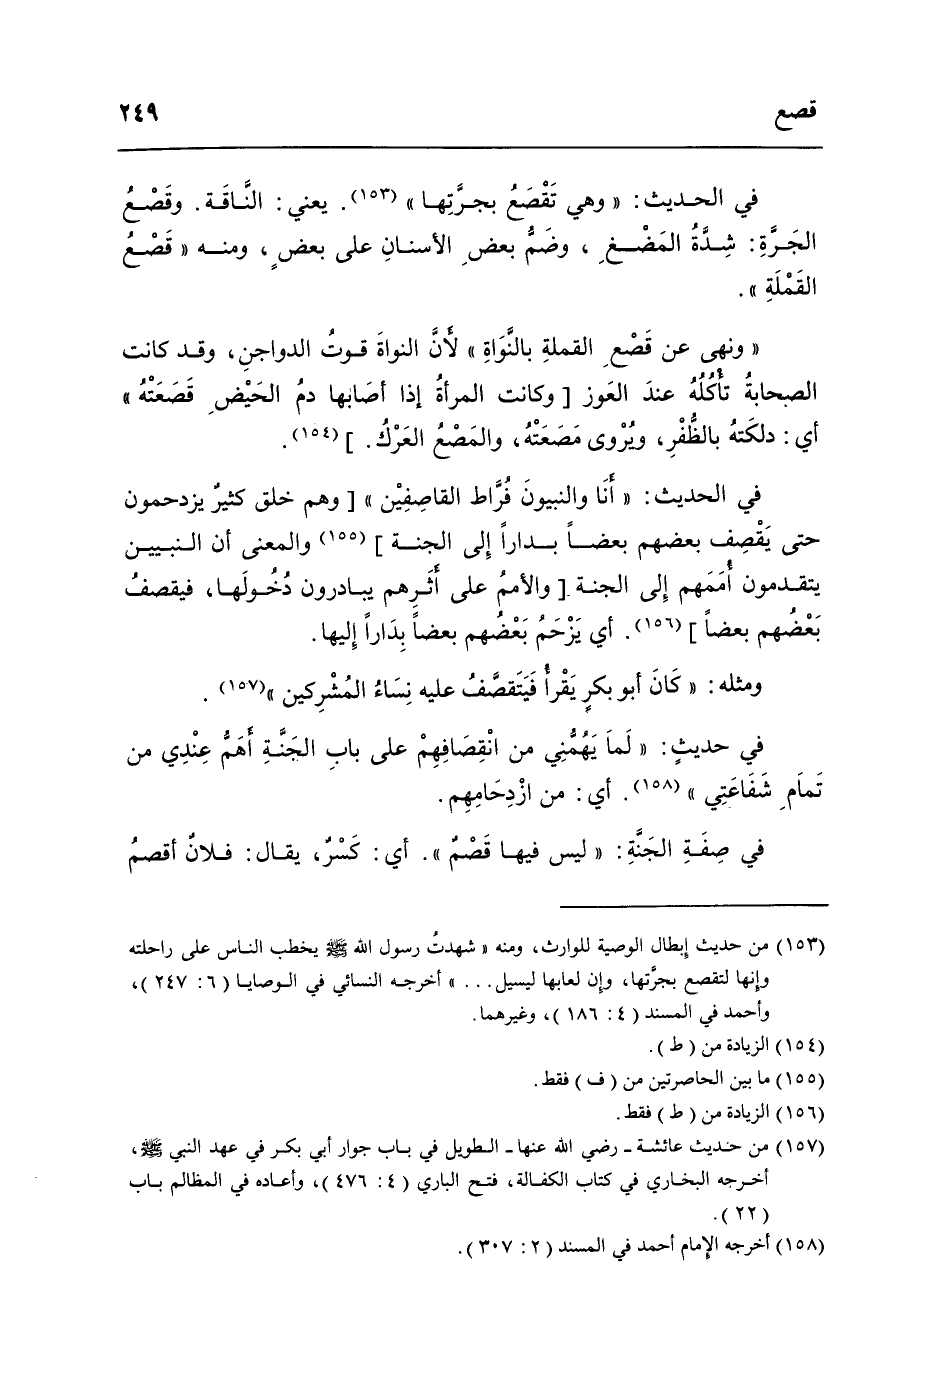 قصع ٢٤٩
في الحديث: « وهي تَقْصَعُ بجرَّتِها » (١٥٣). يعني: النَّاقَة. وقَصْعُ
الجَرَّةِ: شِدَّةُ المَضْغِ ، وضَمُّ بعضِ الأسنانِ على بعضٍ ، ومنه « قَصْعُ
القَمْلَةِ ».
« ونهى عن قَصْعِ القملةِ بالنَّوَاةِ » لأنَّ النواةَ قوتُ الدواجنِ، وقد كانت
الصحابةُ تأْكُلُهُ عندَ العَوز [ وكانت المرأةُ إذا أصَابها دمُ الحَيْضِ قَصَعَتْهُ »
أي: دلكَتهُ بالظُّفْرِ، ويُرْوى مَصَعَتْهُ، والمَصْعُ العَرْكُ. ] (١٥٤).
في الحديث: « أَنَا والنبيونَ فُرَّاط القاصِفِيْن » [ وهم خلق كثيرٌ يزدحمون
حتى يَقْصِف بعضهم بعضاً بداراً إلى الجنة ] (١٥٥) والمعنى أن النبيين
يتقدمون أُمَمَهم إلى الجنة [ والأممُ على أَثَرِهم يبادرون دُخُولَها، فيقصفُ
بَعْضُهم بعضاً ] (١٥٦). أي يَزْحَمُ بَعْضُهم بعضاً بِدَاراً إليها.
ومثله: « كَانَ أبو بكرٍ يَقْرأُ فَيَتَقصَّفُ عليه نِسَاءُ المُشْرِكين »(١٥٧) .
في حديثٍ: « لَماَ يَهُمُّنِي من انْقِصَافِهِمْ على بابِ الجَنَّةِ أَهَمُّ عِنْدِي من
تَماَمِ شَفَاعَتِي » (١٥٨). أي: من ازْدِحَامِهِم.
في صِفَةِ الجَنَّةِ: « ليس فيها قَصْمٌ ». أي: كَسْرٌ، يقال: فلانٌ أقصمُ
(١٥٣) من حديث إبطال الوصية للوارث، ومنه « شهدتُ رسول الله ﷺ يخطب الناس على راحلته
وإنها لتقصع بجرَّتها، وإن لعابها ليسيل... » أخرجه النسائي في الوصايا ( ٦: ٢٤٧ )،
وأحمد في المسند ( ٤: ١٨٦ )، وغيرهما.
(١٥٤) الزيادة من ( ط ).
(١٥٥) ما بين الحاصرتين من ( ف ) فقط.
(١٥٦) الزيادة من ( ط ) فقط.
(١٥٧) من حديث عائشة ـ رضي الله عنها ـ الطويل في باب جوار أبي بكر في عهد النبي ﷺ،
أخرجه البخاري في كتاب الكفالة، فتح الباري ( ٤: ٤٧٦ )، وأعاده في المظالم باب
( ٢٢ ).
(١٥٨) أخرجه الإمام أحمد في المسند ( ٢: ٣٠٧ ).